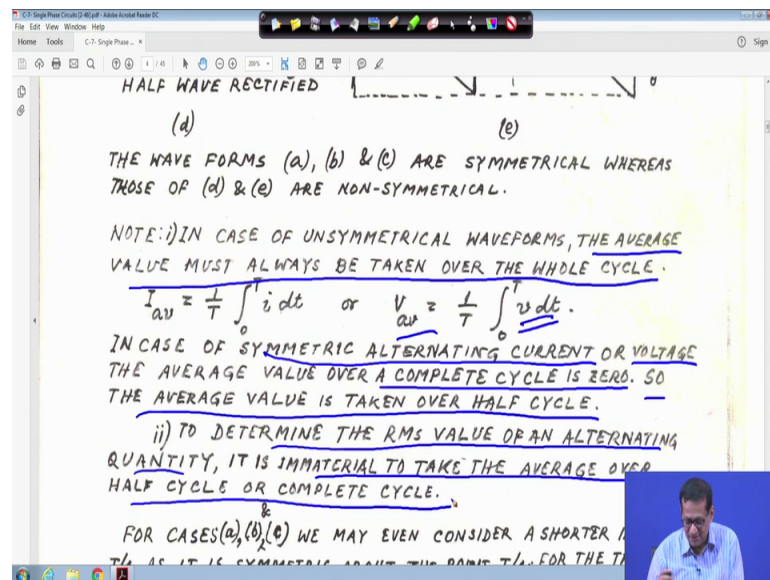 C-7- Single Phase Circuits [2-46].pdf - Adobe Acrobat Reader DC
File Edit View Window Help
Home Tools C-7- Single Phase ... × Sign
4 / 45 200%
HALF WAVE RECTIFIED
(d) (e)
THE WAVE FORMS (a), (b) & (c) ARE SYMMETRICAL WHEREAS
THOSE OF (d) & (e) ARE NON-SYMMETRICAL.
NOTE: i) IN CASE OF UNSYMMETRICAL WAVEFORMS, THE AVERAGE
VALUE MUST ALWAYS BE TAKEN OVER THE WHOLE CYCLE.
I_av = 1/T ∫_0^T i dt or V_av = 1/T ∫_0^T v dt.
IN CASE OF SYMMETRIC ALTERNATING CURRENT OR VOLTAGE
THE AVERAGE VALUE OVER A COMPLETE CYCLE IS ZERO. SO
THE AVERAGE VALUE IS TAKEN OVER HALF CYCLE.
ii) TO DETERMINE THE RMS VALUE OF AN ALTERNATING
QUANTITY, IT IS IMMATERIAL TO TAKE THE AVERAGE OVER
HALF CYCLE OR COMPLETE CYCLE.
FOR CASES (a), (b), & (c) WE MAY EVEN CONSIDER A SHORTER
AS IT IS SYMMETRIC ABOUT THE POINT T/4. FOR THE